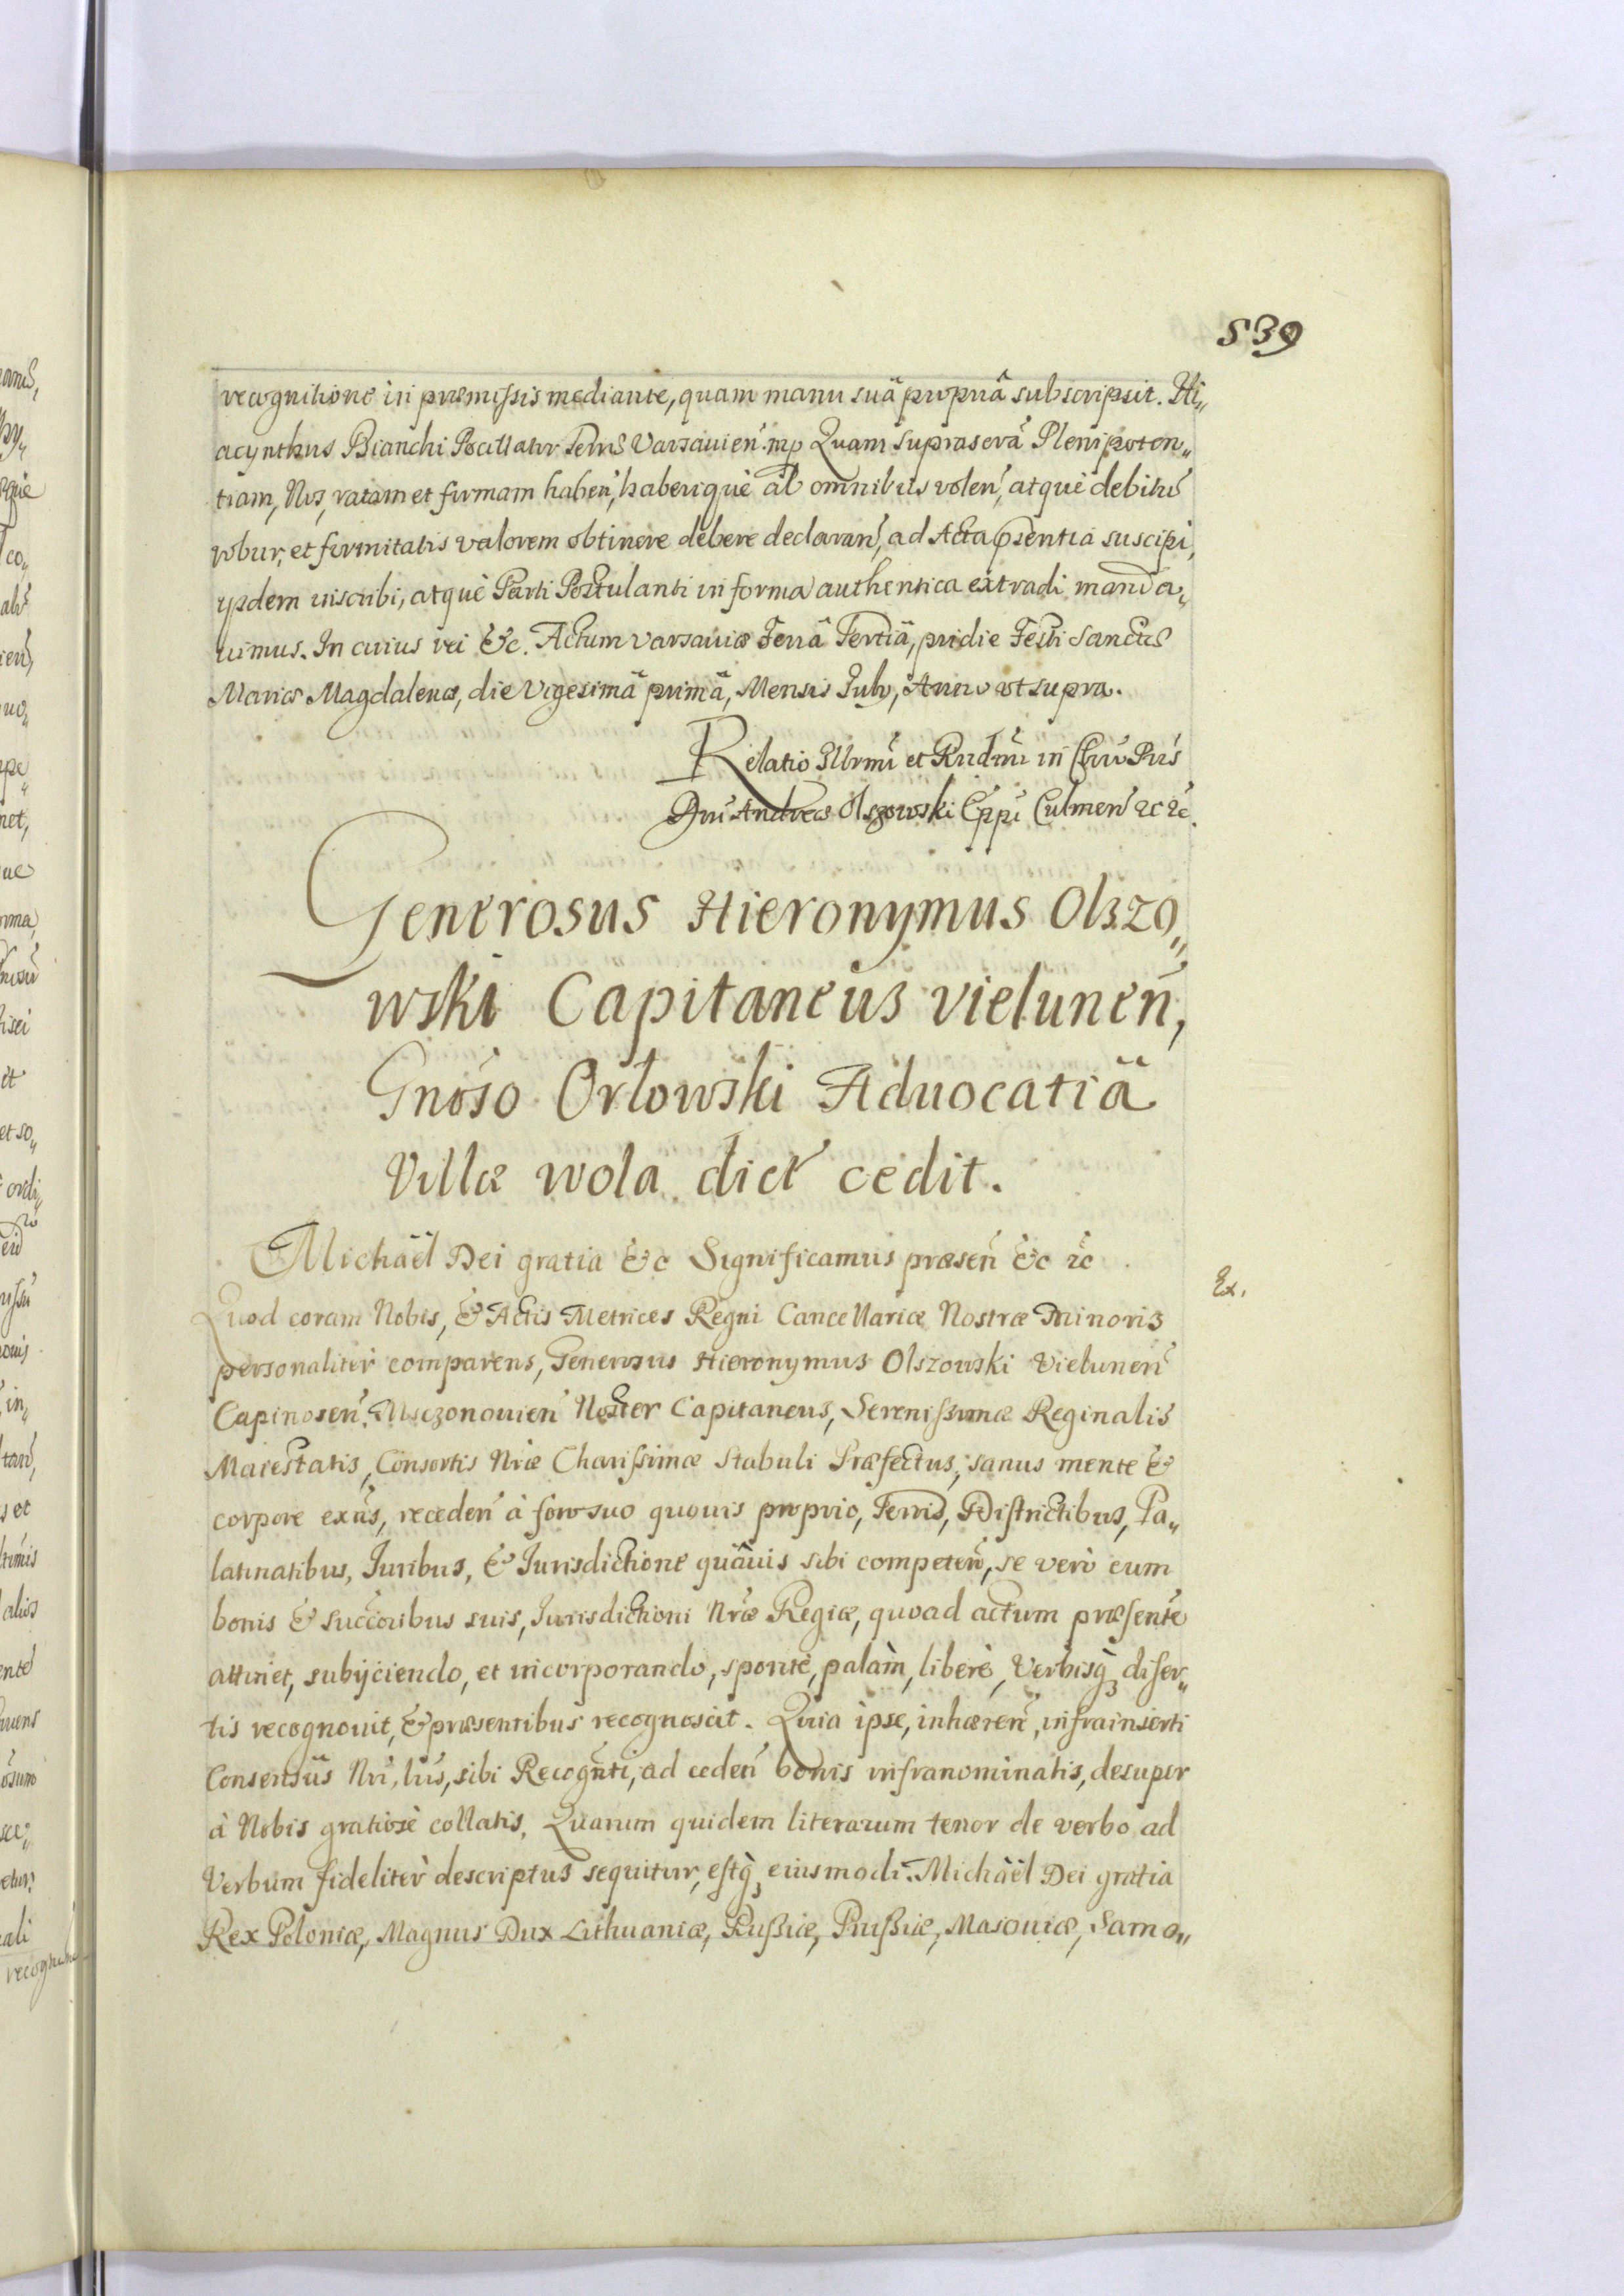 539
recognitione in præmissis mediante, quam manu suâ propriâ subscripsit. Hi„
acynthus Bianchi Pocillator Terrę Varsavien̄. mp Quam suprascr̃a Plenipoten„
tiam, Nos, ratam et firmam haben̄, haberiquè ab omnibus volen̄, atquè debitū
robur, et firmitatis valorem obtinere debere declaran̄, ad Acta pñsentia suscipi,
ijsdem inscribi, atquè Parti Postulanti in forma authentica extradi manda„
uimus. In cuius rei &c. Actum Varsauiæ Feriâ Tertiâ, pridie Festi Sanctę
Mariæ Magdalenæ, die Vigesimâ primâ, Mensis Julij, Anno vt supra.
Relatio Illrmi et Rndmi in Chrō Pris
Dn̄i Andreæ Olszowski Ep̄pi Culmen̄ &c &c.
Generosus Hieronymus Olszo„
wski Capitaneus vielunen̄,
Gnoso Orlowski Aduocatiã
Villæ wola dict̄ cedit.
Michaël Dei gratia &c Significamus præsen̄ &c &c
Ex.
Quod coram Nobis, & Actis Metrices Regni Cancellariæ Nostræ Minoris
personaliter comparens, Generosus Hieronymus Olszowski Vielunen̄
Capinosen̄. Msczonouien̄ Noster Capitaneus, Serenissimæ Reginalis
Maiestatis, Consortis Nr̃æ Charissimæ Stabuli Præfectus, sanus mente &
corpore exñs, receden̄ à foro suo quouis proprio, Terris, Districtibus, Pa„
latinatibus, Iuribus, & Iurisdictione quâuis sibi competen̄, se verò cum
bonis & succōribus suis, Jurisdictioni Nr̃æ Regiæ, quoad actum præsentē
attinet, subijciendo, et incorporando, spontè, palàm, liberè, Verbisq̀ȝ diser„
tis recognouit, & præsentibus recognoscit. Quia ipse, inhæren̄, infrainserti
Consensûs Nr̃i, lr̃is, sibi Recognti, ad ceden̄ bonis infranominatis, desuper
à Nobis gratiosè collatis. Quarum quidem literarum tenor de verbo ad
Verbum fideliter descriptus sequitur, estq̀ȝ eiusmodi. Michaël Dei gratia
Rex Poloniæ, Magnus Dux Lithuaniæ, Rußiæ, Prußiæ, Masouiæ, Samo„